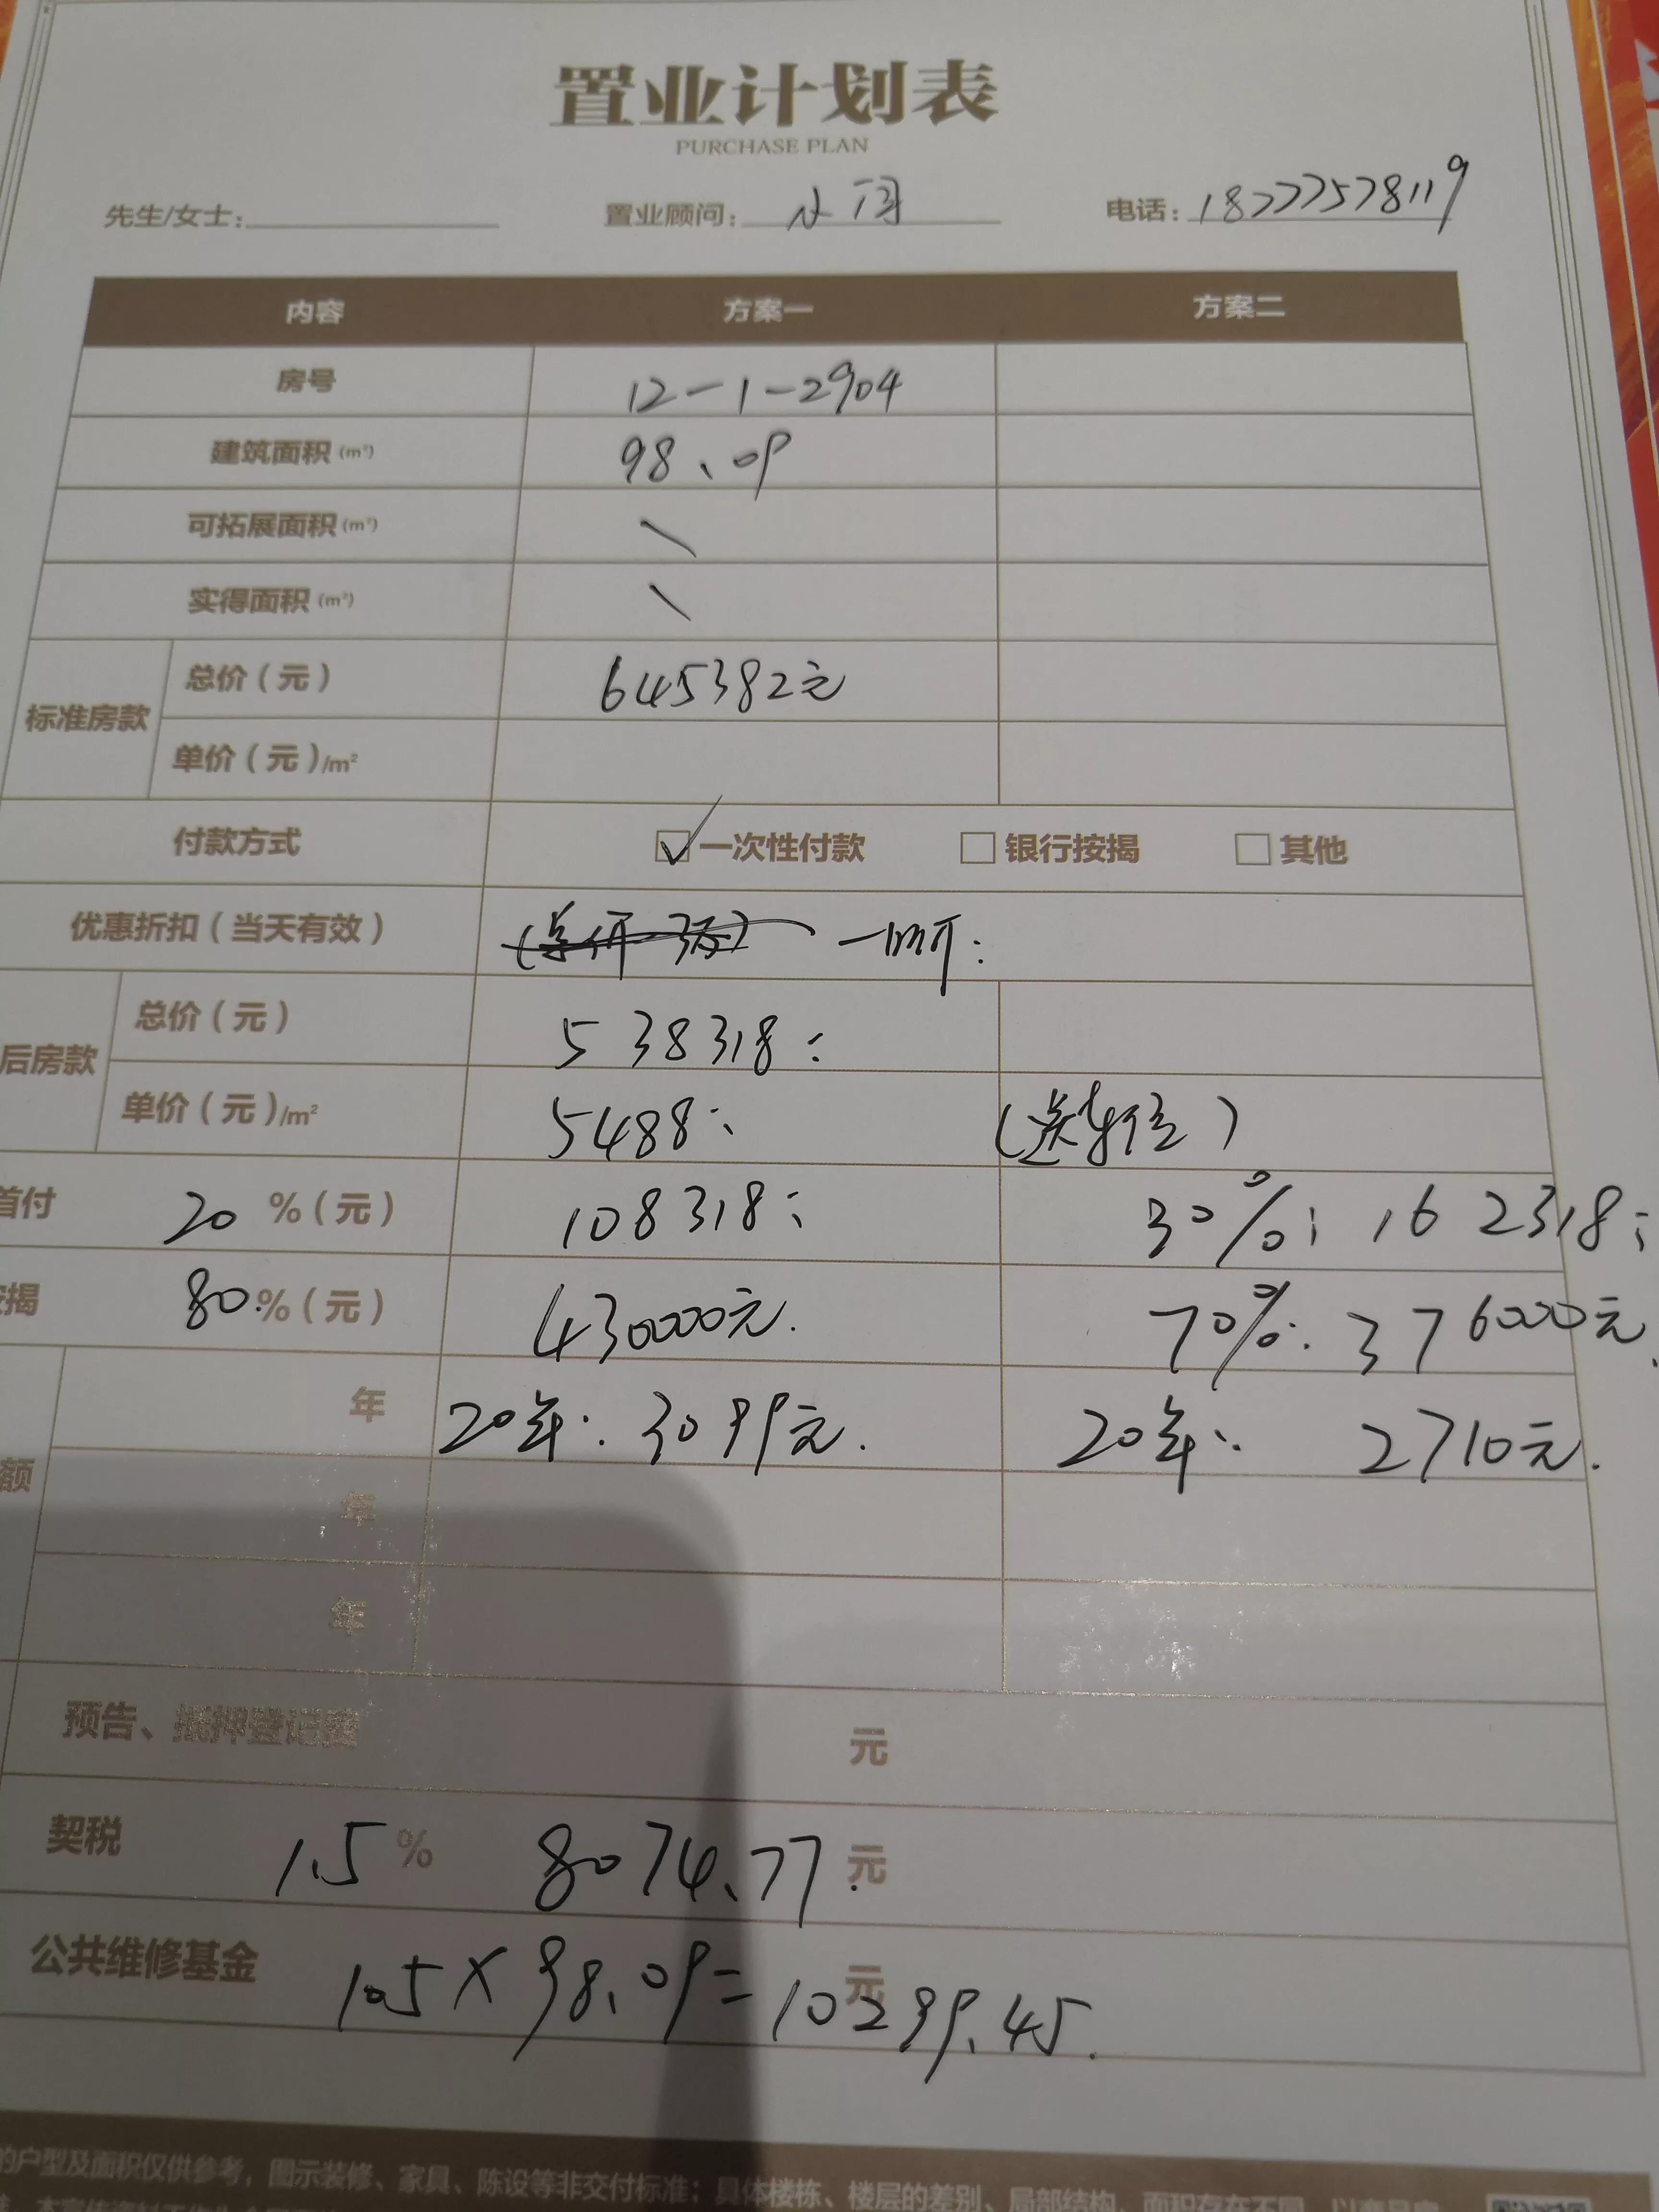 置业计划表
PURCHASE PLAN
先生/女士: 置业顾问: 小周 电话: 18777578119
内容 方案一 方案二
房号 12-1-2904
建筑面积(m²) 98.09
可拓展面积(m²) \
实得面积(m²) \
标准房款 总价(元) 645382元
单价(元)/m²
付款方式 ☑一次性付款 □银行按揭 □其他
优惠折扣(当天有效) 一口价:
后房款 总价(元) 538318:
单价(元)/m² 5488: (送车位)
首付 20 %(元) 108318: 30%: 162318:
按揭 80 %(元) 430000元. 70%: 376000元.
额 年 20年: 3099元. 20年: 2710元.
年
年
预告、抵押登记费 元
契税 1.5 % 8074.77 元
公共维修基金 105×98.09=10299.45. 元
的户型及面积仅供参考,图示装修、家具、陈设等非交付标准;具体楼栋、楼层的差别、局部结构、面积存在不同,